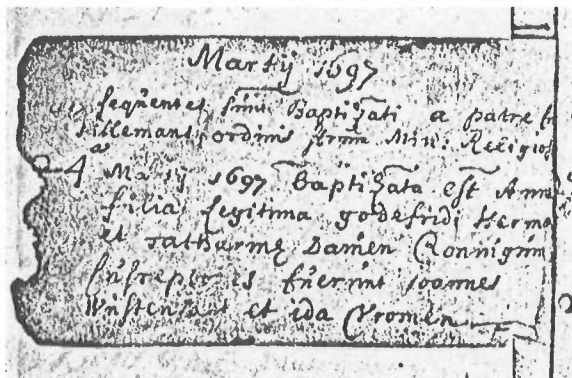 Martij 1697
sequentes sunt Baptizati a patre
Tillemans ordinis frum Min: Religios
4 Martij 1697 Baptizata est Anna
filia legitima godefridi Herma
et Catharinę Damen Conniguu
susceptores fuerunt Joannes
et ida Vromen